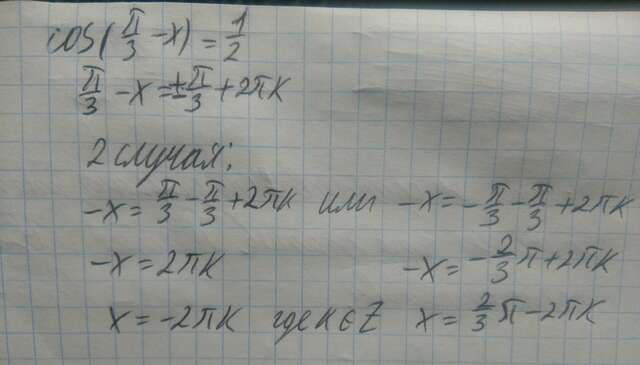 cos(π/3 -x) = 1/2
π/3 - x = ± π/3 + 2πк
2 случая:
-x = π/3 - π/3 + 2πк или -x = - π/3 - π/3 + 2πк
-x = 2πк -x = - 2/3 π + 2πк
x = -2πк где к ∈ Z x = 2/3 π - 2πк